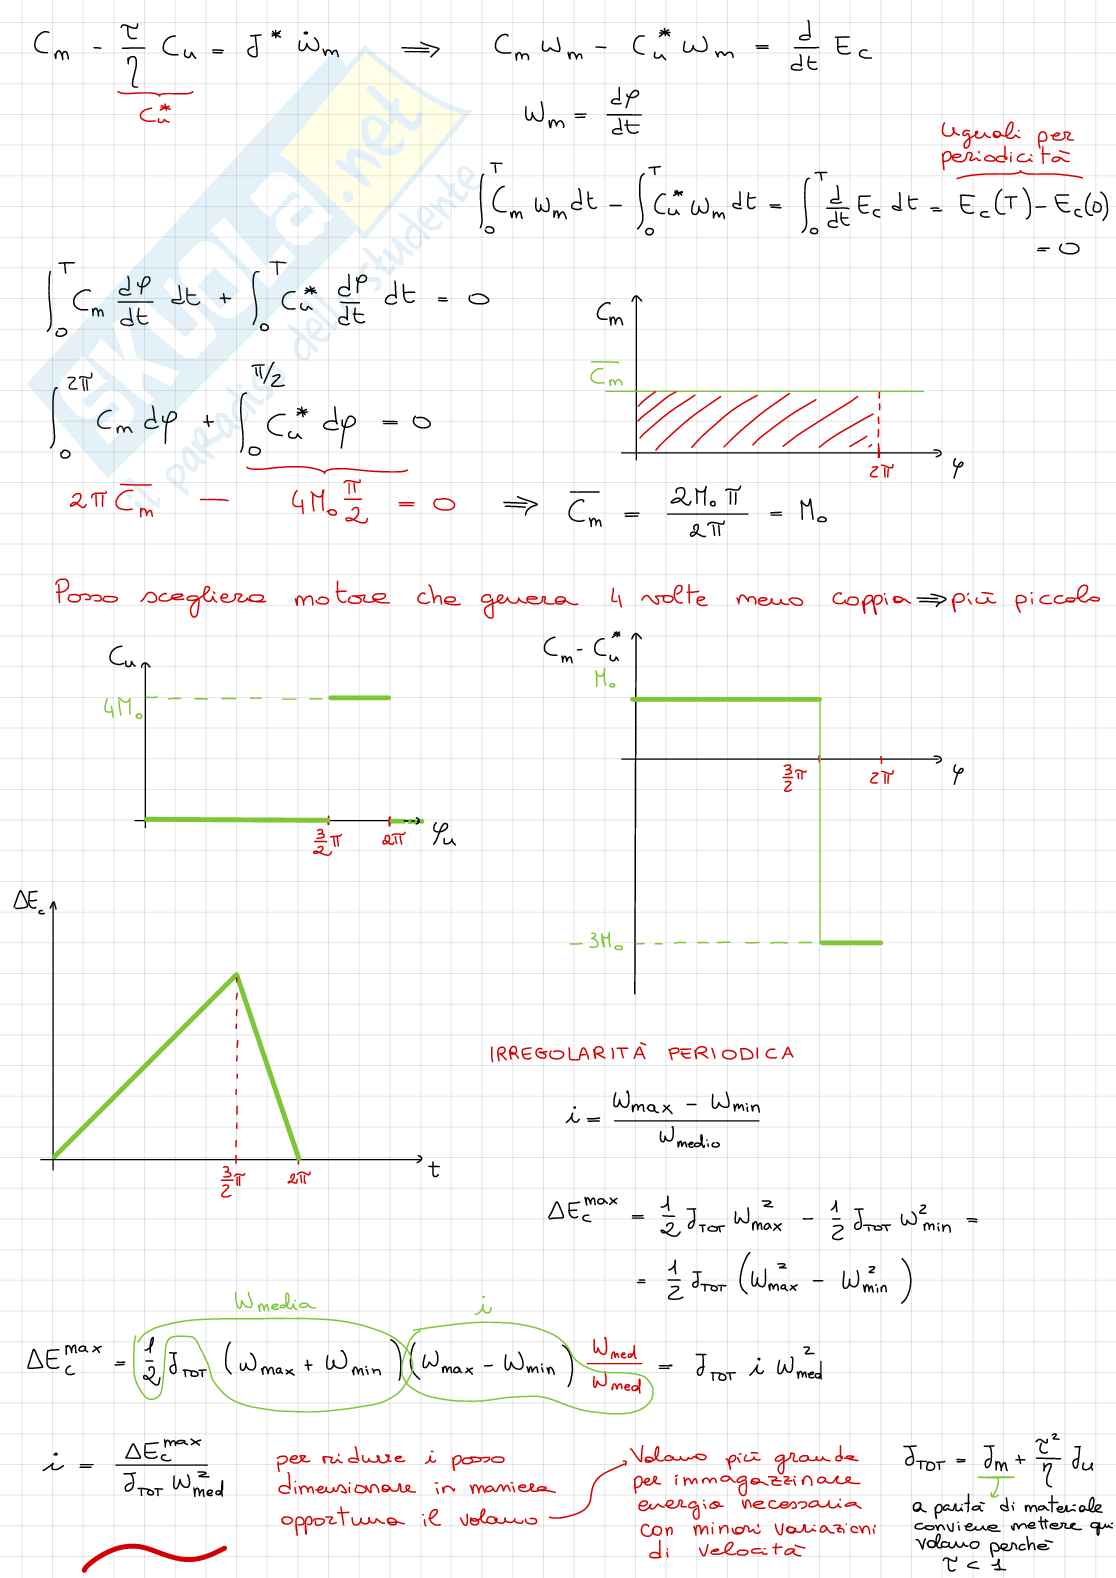 C_m - τ/η C_u = J* ω̇_m ⇒ C_m ω_m - C_u* ω_m = d/dt E_c
C_u*
ω_m = dφ/dt
Uguali per
periodicità
∫_0^T C_m ω_m dt - ∫_0^T C_u* ω_m dt = ∫_0^T d/dt E_c dt = E_c(T) - E_c(0)
= 0
∫_0^T C_m dφ/dt dt + ∫_0^T C_u* dφ/dt dt = 0
∫_0^2π C_m dφ + ∫_0^π/2 C_u* dφ = 0
C_m
C̅_m
2π φ
2π C̅_m - 4M₀ π/2 = 0 ⇒ C̅_m = 2M₀π/2π = M₀
Posso scegliere motore che genera 4 volte meno coppia ⇒ più piccolo
C_u
4M₀
3/2π 2π φ_u
C_m - C_u*
M₀
3/2π 2π φ
-3M₀
ΔE_c
3/2π 2π t
IRREGOLARITÀ PERIODICA
i = (ω_max - ω_min)/ω_medio
ΔE_c^max = 1/2 J_TOT ω_max² - 1/2 J_TOT ω²_min =
= 1/2 J_TOT (ω_max² - ω_min²)
ω_media i
ΔE_c^max = 1/2 J_TOT (ω_max + ω_min)(ω_max - ω_min) ω_med/ω_med = J_TOT i ω_med²
i = ΔE_c^max/(J_TOT ω_med²)
per ridurre i posso
dimensionare in maniera
opportuna il volano
Volano più grande
per immagazzinare
energia necessaria
con minori variazioni
di velocità
J_TOT = J_m + τ²/η J_u
a parità di materiale
conviene mettere qui
volano perchè
τ < 1
SKUOLA.net
il paradiso dello studente